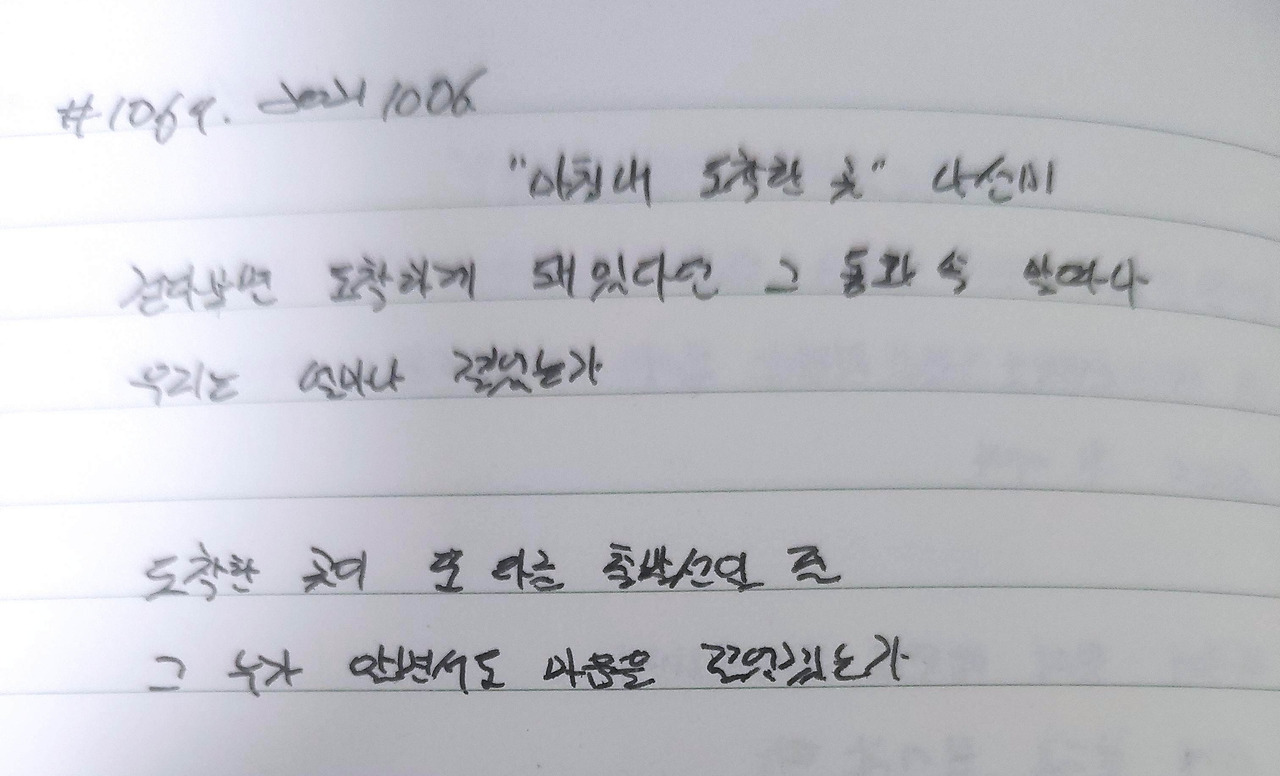 #1069. 1006
"마침내 도착한 곳" 나선미
걷다보면 도착하게 돼있다던 그 동화 속 말마다
우리는 얼마나 걸었는가
도착한 곳이 또 다른 출발선인 줄
그 누가 알면서도 마음을 걸었겠는가